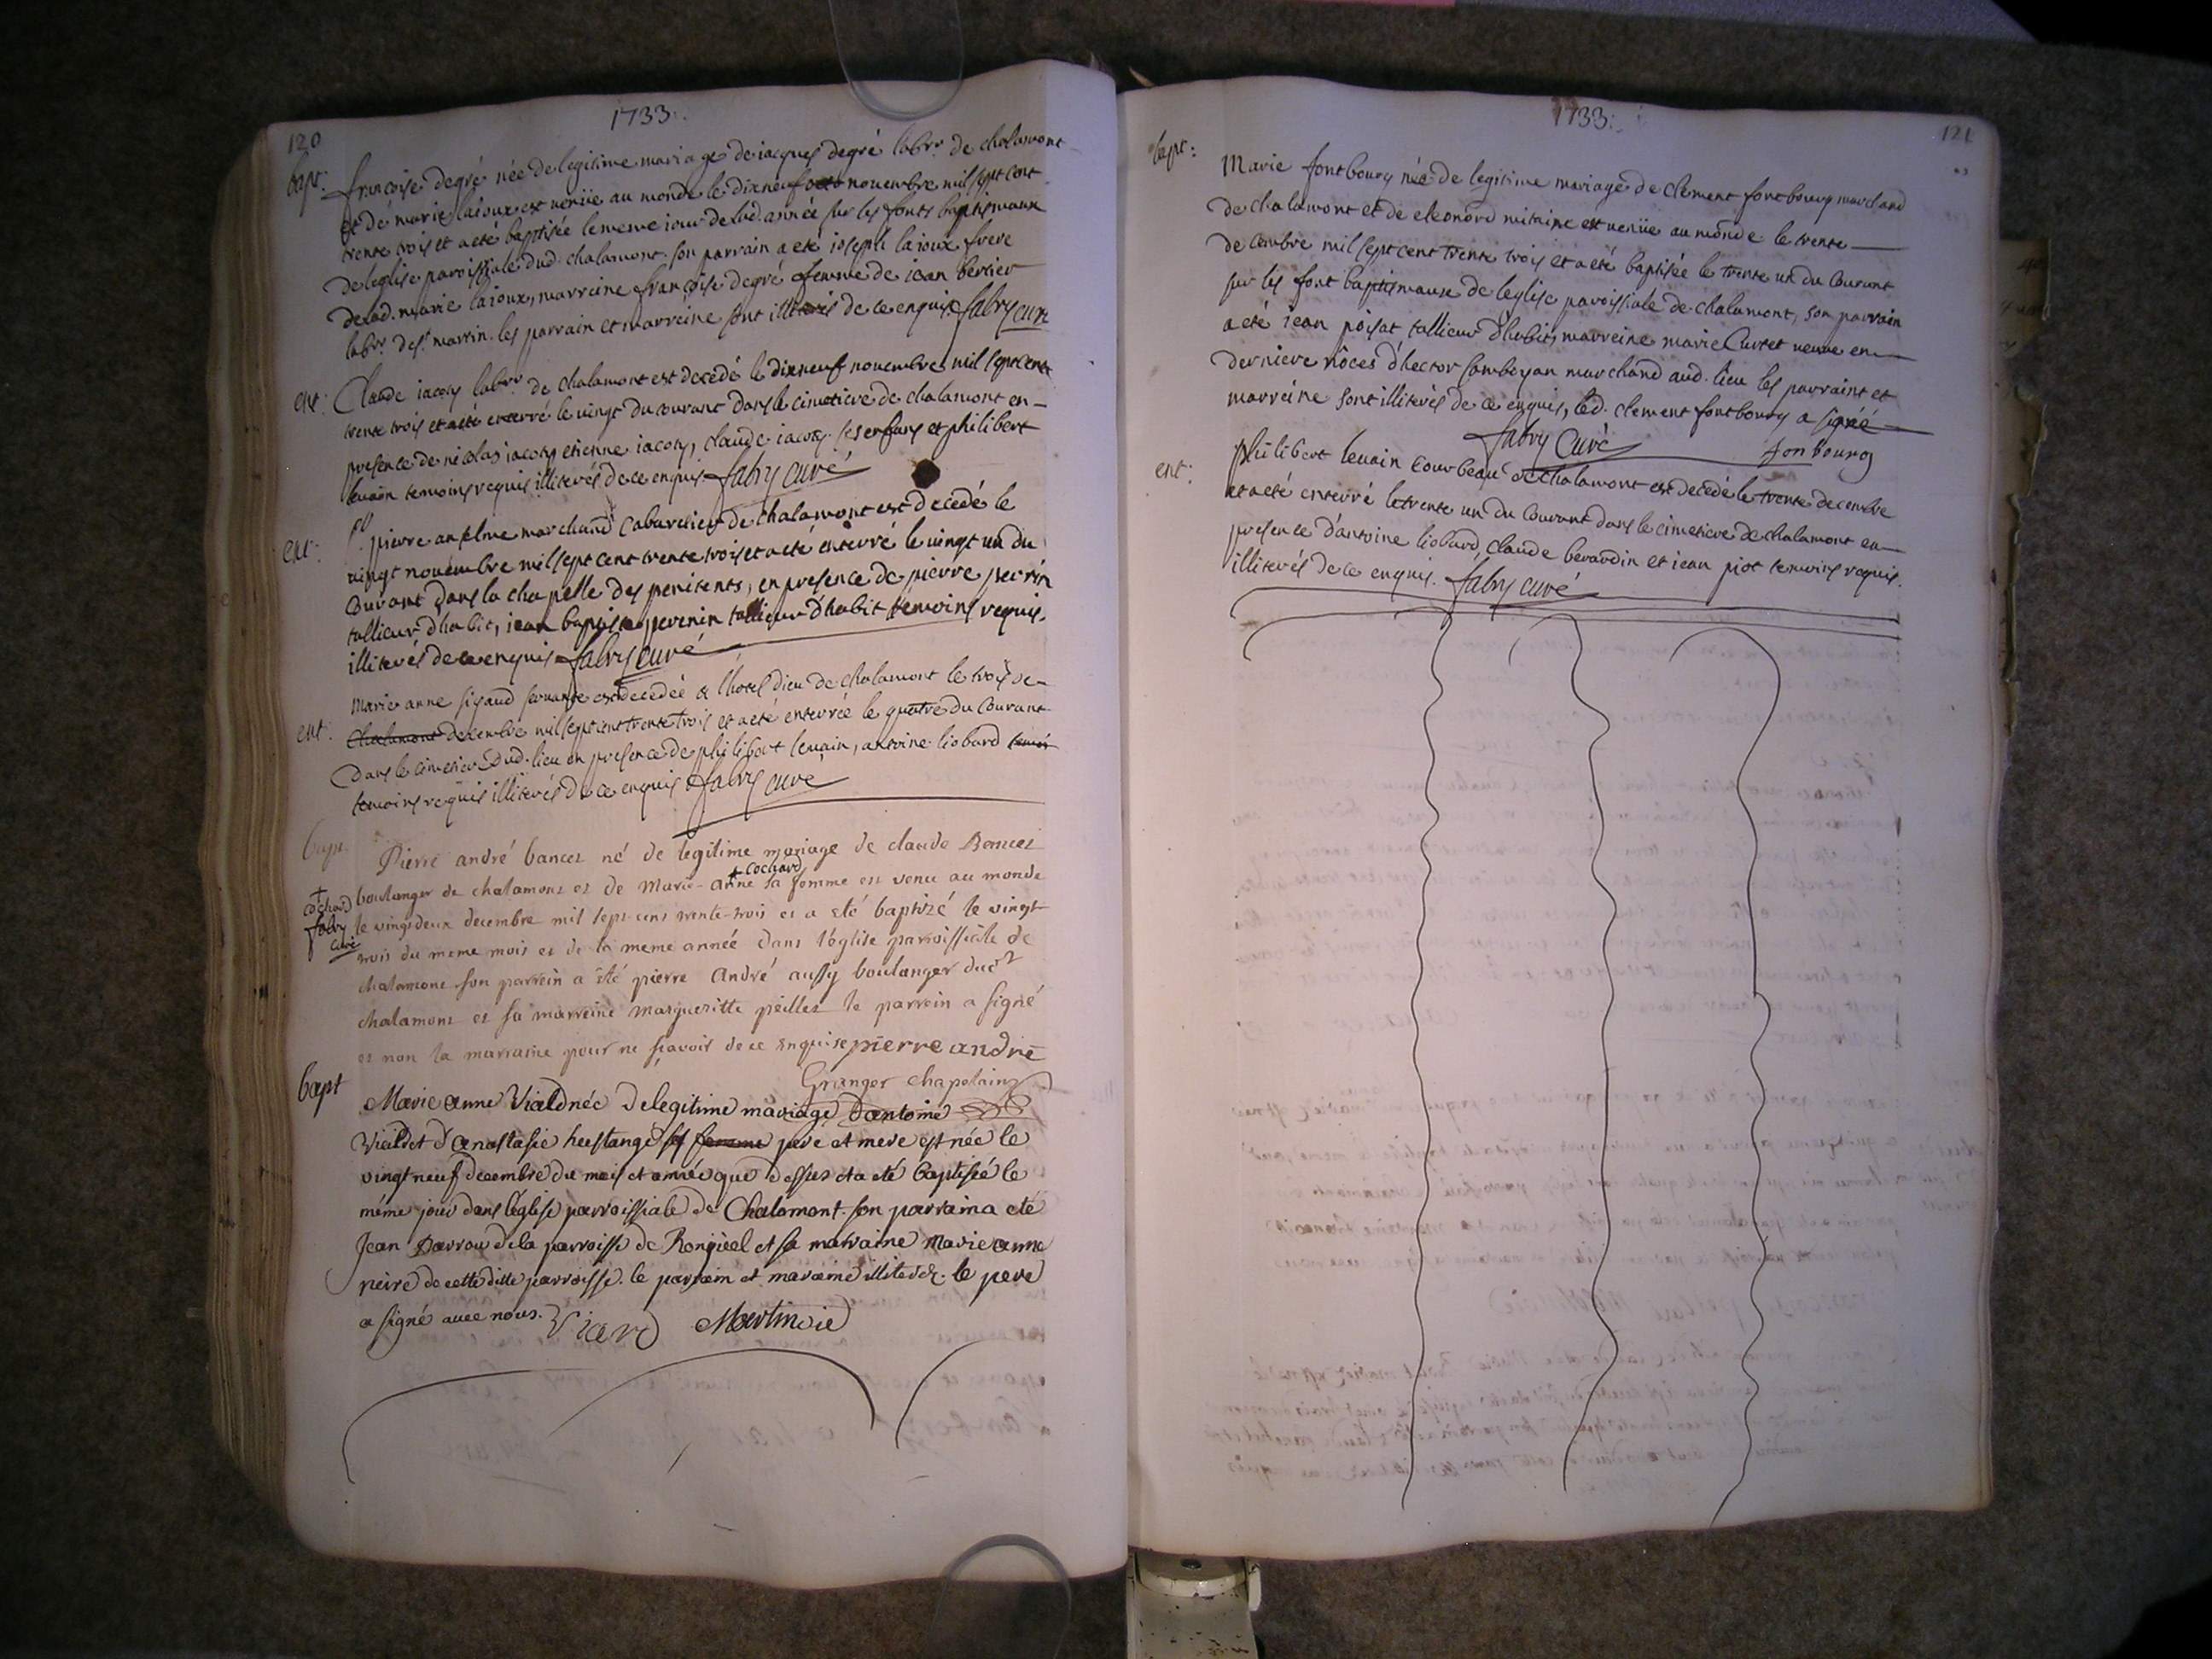 120
1733.
bapt:
françoise degré née de legitime mariage de iacques degré labr. de chalamont
et de marie laioux est venüe au monde le dixneuf nouembre mil sept cent
trente trois et a eté baptisée le meme iour de lad. année sur les fonts baptismaux
de leglise paroissiale dud. chalamont. son parrain a eté ioseph laioux frere
de lad. marie laioux, marreine françoise degré femme de iean berlier
labr. de st. martin. les parrain et marreine sont illiterés de ce enquis fabry curé
ent:
Claude iacoty labr. de chalamont est decedé le dixneuf nouembre mil sept cent
trente trois et a eté enterré le vingt du courant dans le cimetiere de chalamont en
presence de nicolas iacoty etienne iacoty, claude iacoty ses enfans et philibert
leuain temoins requis illiterés de ce enquis fabry curé
ent:
pierre anselme marchand cabaretier de chalamont est decedé le
vingt nouembre mil sept cent trente trois et a eté enterré le vingt un du
Courant dans la chapelle des penitents, en presence de pierre perrin
tallieur d'habit, iean baptiste perenin tallieur d'habit témoins requis.
illiterés de ce enquis fabry curé
ent:
marie anne sigaud seruante est decedeé a l'hotel dieu de chalamont le trois de
chalamont decembre mil sept cent trente trois et a eté enterrée le quatre du Courant
dans le cimetiere dud. lieu en presence de philibert leuain, antoine liobard temoi
temoins requis illiterés de ce enquis fabry curé
bapt.
Pierre andré bancet né de legitime mariage de claude Bancet
+ cochard
boulanger de chalamont et de Marie-anne sa femme est venu au monde
+ cochard
fabry
curé
le vingt deux decembre mil sept cens trente-trois et a eté baptizé le vingt
trois du meme mois et de la meme année dans l'église parroissiale de
chalamont son parrein a été pierre André aussy boulanger dud.
chalamont et sa marreine margueritte peillet le parrein a signé
et non la marraine pour ne sçavoir de ce enquise pierre andré
Granger chapelain
bapt
Marie anne Viald née de legitime mariage d'antoine
Viald et d'anastasie heustange sa femme pere et mere est née le
vingt neuf decembre du mois et année que dessus et a eté baptisée le
même jour dans l'église parroissiale de Chalamont. son parrain a eté
Jean Darrou de la parroisse de Ronguel et sa marraine Marie anne
neire de cette ditte parroisse. le parrain et maraine illiterés. le pere
a signé auec nous. Viard Martin vic
1733.
121
bapt:
Marie fontbourg née de legitime mariage de clement fontbourg marchand
de chalamont et de eleonord mitaine est venüe au monde le trente
decembre mil sept cent trente trois et a eté baptisée le trente un du Courant
sur les font baptismaux de leglise paroissiale de chalamont, son parrain
a eté iean poisat tallieur d'habits, marreine marie Curtet veuue en
derniere nôces d'hector Sambeyan marchand aud. lieu les parraint et
marreine sont illiterés de ce enquis, led. clement fontbourg a signé
fabry Curé fonbourg
ent:
philibert leuain Courbeau de chalamont est decedé le trente decembre
et a eté enterré le trente un du Courant dans le cimetiere de chalamont en
presence d'antoine liobard, claude berardin et iean piot temoins requis.
illiterés de ce enquis. fabry curé